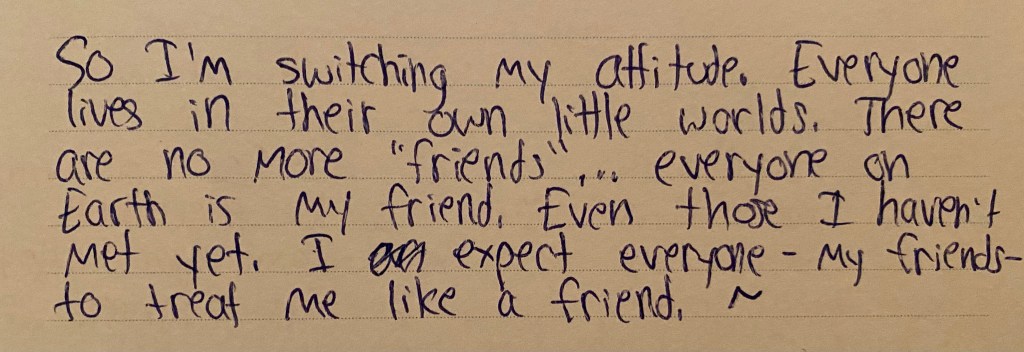 So I'm switching my attitude. Everyone
lives in their own little worlds. There
are no more "friends"... everyone on
Earth is my friend. Even those I haven't
met yet. I expect everyone - my friends-
to treat me like a friend. ~